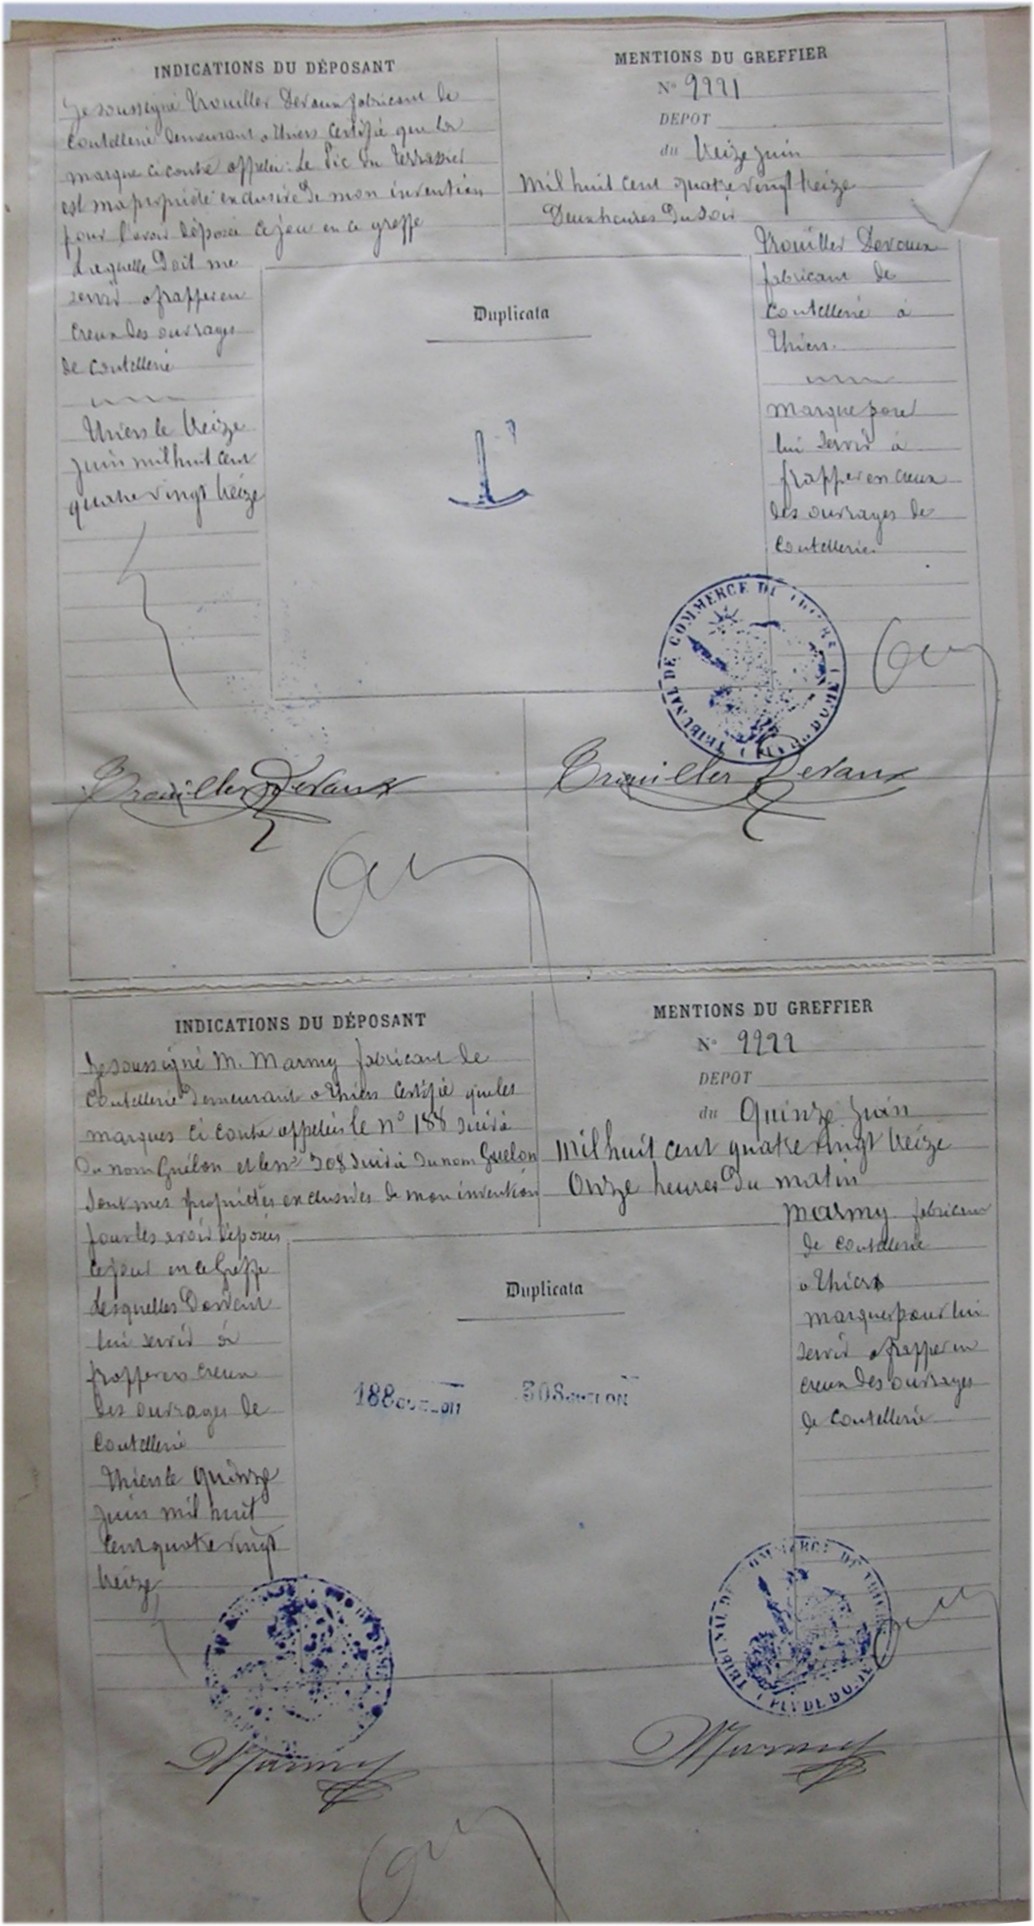 INDICATIONS DU DÉPOSANT
Je soussigné Trouiller Devaux fabricant de
Coutellerie demeurant a Thiers Certifie que la
marque ci contre appelée: Le Pic du Terrassier
est ma propriété exclusive de mon invention
pour l'avoir déposée ce jour en ce greffe
Laquelle doit me
servir a frapper en
creux des ouvrages
de Coutellerie
Thiers le treize
juin mil huit cent
quatre vingt treize
MENTIONS DU GREFFIER
N° 2221
DEPOT
du treize juin
mil huit cent quatre vingt treize
Deux heures du soir
Trouiller Devaux
fabricant de
Coutellerie à
Thiers.
marque pour
lui servir à
frapper en creux
des ouvrages de
Coutellerie.
Duplicata
TRIBUNAL DE COMMERCE DE
Trouiller Devaux
Trouiller Devaux
INDICATIONS DU DÉPOSANT
Je soussigné M. Marmy fabricant de
Coutellerie demeurant a Thiers Certifie que les
marques ci contre appelées le n° 188 suivi
du nom Guélon et le n° 308 suivi du nom Guelon
sont mes propriétés exclusives de mon invention
pour les avoir déposées
ce jour en ce Greffe
Lesquelles doivent
lui servir à
frapper en creux
des ouvrages de
Coutellerie
Thiers le quinze
juin mil huit
cent quatre vingt
treize
MENTIONS DU GREFFIER
N° 2222
DEPOT
du quinze juin
Mil huit cent quatre vingt treize
Onze heures du matin
Marmy fabricant
de Coutellerie
a Thiers
marques pour lui
servir a frapper en
creux des ouvrages
de Coutellerie
Duplicata
188 308
TRIBUNAL DE COMMERCE DE THIERS
PUY DE DOME
Marmy
Marmy